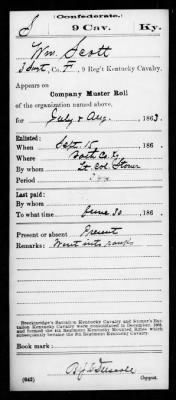 (Confederate.)
S 9 Cav. Ky.
Wm. Scott
Co. F, 9 Reg't Kentucky Cavalry.
Appears on
Company Muster Roll
of the organization named above,
for July & Aug, 1863
Enlisted:
When Sept. 15, 186
Where Bath Co Ky
By whom Lt Col Stoner
Period
Last paid:
By whom
To what time June 30, 186
Present or absent Present
Remarks: Went into ranks
Breckinridge's Battalion Kentucky Cavalry and Stoner's Battalion Kentucky Cavalry were consolidated in December, 1862, and formed the 9th Regiment Kentucky Mounted Rifles which subsequently became the 9th Regiment Kentucky Cavalry.
Book mark:
(642) Copyist.